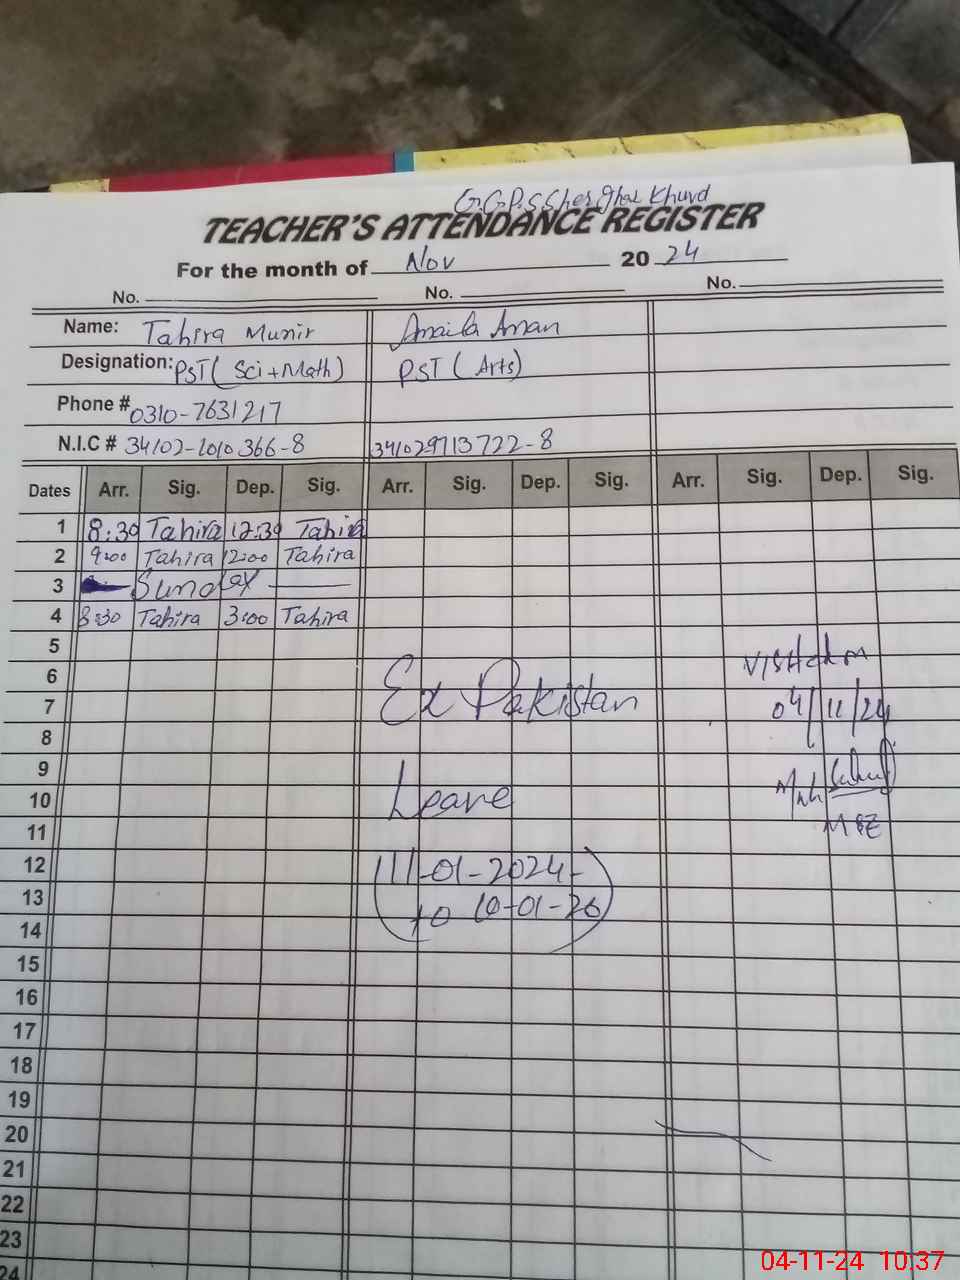 G.G.P.S Sher Ghar Khurd
TEACHER'S ATTENDANCE REGISTER
For the month of Nov 20 24
No. No. No.
Name: Tahira Munir Amaila Aman
Designation: PST (Sci + Math) PST (Arts)
Phone # 0310-7631217
N.I.C # 34102-1010366-8 341029713722-8
Dates Arr. Sig. Dep. Sig. Arr. Sig. Dep. Sig. Arr. Sig. Dep. Sig.
1 8:30 Tahira 12:30 Tahira
2 9:00 Tahira 12:00 Tahira
3 Sunday
4 8:30 Tahira 3:00 Tahira
5
6
7 Ex Pakistan 04/11/24
8
9
10 Leave
11 MEE
12 11-01-2024-
13 to 10-01-26
14
15
16
17
18
19
20
21
22
23
24
04-11-24 10:37